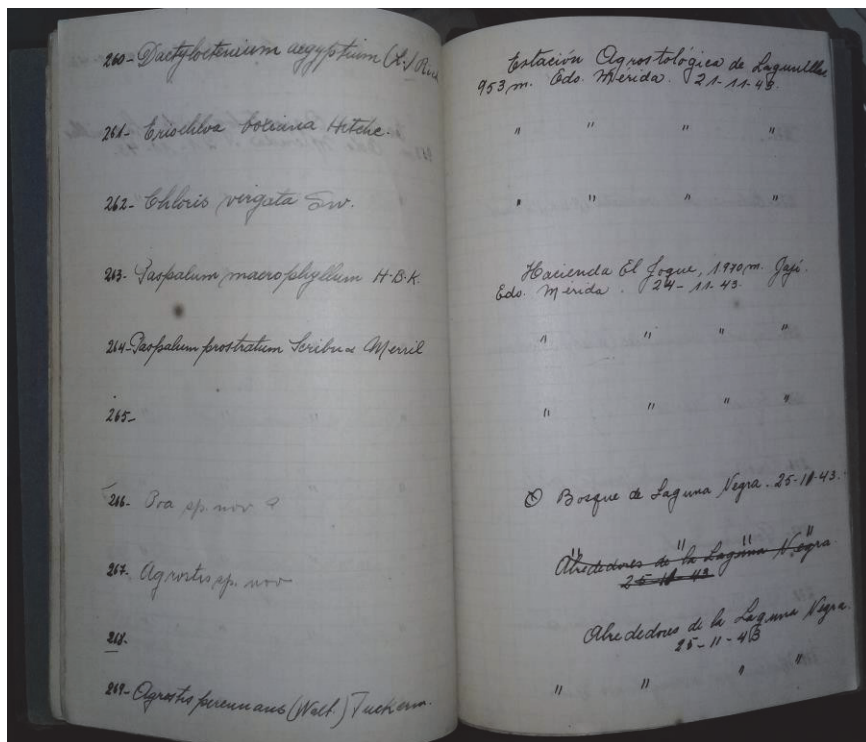 260- Dactyloctenium aegyptium (L.) Rich
261- Eriochloa boxiana Hitchc.
262- Chloris virgata Sw.
263- Paspalum macrophyllum H.B.K.
264- Paspalum prostratum Scribn & Merril
265-
266- Poa sp. nov ?
267- Agrostis sp. nov
268-
269- Agrostis perennans (Walt.) Tuckerm.
Estación Agrostológica de Lagunillas
953 m. Edo. Mérida. 21-11-43.
" " " "
" " " "
Hacienda El Joque, 1.970 m. Jají.
Edo. Mérida. 24-11-43.
" " " "
" " " "
Bosque de Laguna Negra. 25-11-43.
" " " "
Alrededores de la Laguna Negra
25-11-43
Alrededores de la Laguna Negra.
25-11-43
" " " "